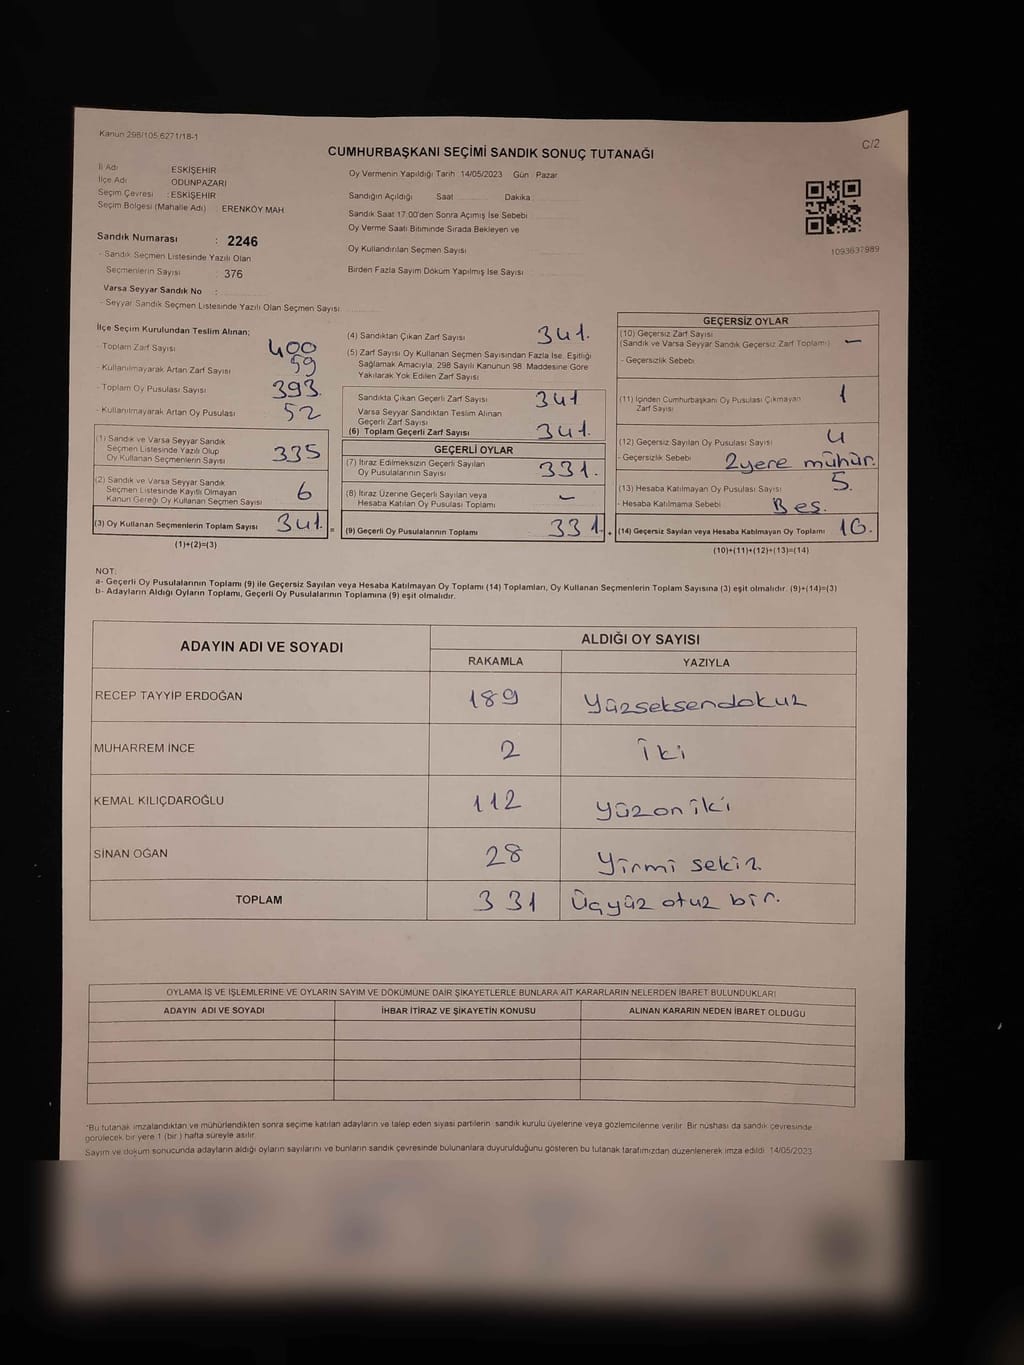 Kanun 298/105,6271/18-1
C/2
CUMHURBAŞKANI SEÇİMİ SANDIK SONUÇ TUTANAĞI
İl Adı : ESKİŞEHİR
İlçe Adı : ODUNPAZARI
Seçim Çevresi : ESKİŞEHİR
Seçim Bölgesi (Mahalle Adı) : ERENKÖY MAH
Sandık Numarası : 2246
- Sandık Seçmen Listesinde Yazılı Olan
Seçmenlerin Sayısı : 376
Varsa Seyyar Sandık No :
- Seyyar Sandık Seçmen Listesinde Yazılı Olan Seçmen Sayısı
Oy Vermenin Yapıldığı Tarih : 14/05/2023 Gün : Pazar
Sandığın Açıldığı Saat Dakika
Sandık Saat 17:00'den Sonra Açımış İse Sebebi
Oy Verme Saati Bitiminde Sırada Bekleyen ve
Oy Kullandırılan Seçmen Sayısı
Birden Fazla Sayım Döküm Yapılmış İse Sayısı
1093637989
İlçe Seçim Kurulundan Teslim Alınan;
- Toplam Zarf Sayısı 400
- Kullanılmayarak Artan Zarf Sayısı 59
- Toplam Oy Pusulası Sayısı 393
- Kullanılmayarak Artan Oy Pusulası 52
(1) Sandık ve Varsa Seyyar Sandık
Seçmen Listesinde Yazılı Olup
Oy Kullanan Seçmenlerin Sayısı 335
(2) Sandık ve Varsa Seyyar Sandık
Seçmen Listesinde Kayıtlı Olmayan
Kanun Gereği Oy Kullanan Seçmen Sayısı 6
(3) Oy Kullanan Seçmenlerin Toplam Sayısı 341. =
(1)+(2)=(3)
(4) Sandıktan Çıkan Zarf Sayısı 341.
(5) Zarf Sayısı Oy Kullanan Seçmen Sayısından Fazla İse, Eşitliği
Sağlamak Amacıyla, 298 Sayılı Kanunun 98. Maddesine Göre
Yakılarak Yok Edilen Zarf Sayısı
Sandıkta Çıkan Geçerli Zarf Sayısı 341
Varsa Seyyar Sandıktan Teslim Alınan
Geçerli Zarf Sayısı
(6) Toplam Geçerli Zarf Sayısı 341.
GEÇERLİ OYLAR
(7) İtiraz Edilmeksizin Geçerli Sayılan
Oy Pusulalarının Sayısı 331.
(8) İtiraz Üzerine Geçerli Sayılan veya
Hesaba Katılan Oy Pusulası Toplamı –
(9) Geçerli Oy Pusulalarının Toplamı 331. +
GEÇERSİZ OYLAR
(10) Geçersiz Zarf Sayısı
(Sandık ve Varsa Seyyar Sandık Geçersiz Zarf Toplamı) –
- Geçersizlik Sebebi
(11) İçinden Cumhurbaşkanı Oy Pusulası Çıkmayan
Zarf Sayısı 1
(12) Geçersiz Sayılan Oy Pusulası Sayısı 4
- Geçersizlik Sebebi 2yere mühür.
(13) Hesaba Katılmayan Oy Pusulası Sayısı 5.
- Hesaba Katılmama Sebebi Beş.
(14) Geçersiz Sayılan veya Hesaba Katılmayan Oy Toplamı 10.
(10)+(11)+(12)+(13)=(14)
NOT:
a- Geçerli Oy Pusulalarının Toplamı (9) ile Geçersiz Sayılan veya Hesaba Katılmayan Oy Toplamı (14) Toplamları, Oy Kullanan Seçmenlerin Toplam Sayısına (3) eşit olmalıdır. (9)+(14)=(3)
b- Adayların Aldığı Oyların Toplamı, Geçerli Oy Pusulalarının Toplamına (9) eşit olmalıdır.
ADAYIN ADI VE SOYADI ALDIĞI OY SAYISI
RAKAMLA YAZIYLA
RECEP TAYYIP ERDOĞAN 189 Yüzseksendokuz
MUHARREM İNCE 2 İki
KEMAL KILIÇDAROĞLU 112 yüzoniki
SİNAN OĞAN 28 Yirmi sekiz
TOPLAM 331 Üçyüz otuz bir.
OYLAMA İŞ VE İŞLEMLERİNE VE OYLARIN SAYIM VE DÖKÜMÜNE DAİR ŞİKAYETLERLE BUNLARA AİT KARARLARIN NELERDEN İBARET BULUNDUKLARI
ADAYIN ADI VE SOYADI İHBAR İTİRAZ VE ŞİKAYETİN KONUSU ALINAN KARARIN NEDEN İBARET OLDUĞU
*Bu tutanak imzalandıktan ve mühürlendikten sonra seçime katılan adayların ve talep eden siyasi partilerin sandık kurulu üyelerine veya gözlemcilerine verilir. Bir nüshası da sandık çevresinde
görülecek bir yere 1 (bir) hafta süreyle asılır.
Sayım ve döküm sonucunda adayların aldığı oyların sayılarını ve bunların sandık çevresinde bulunanlara duyurulduğunu gösteren bu tutanak tarafımızdan düzenlenerek imza edildi. 14/05/2023